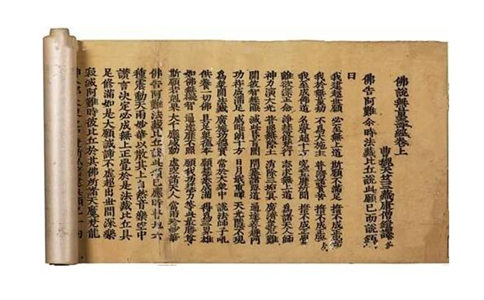 佛説無量壽經卷上
曹魏天竺三藏康僧鎧譯
佛告阿難尒時法藏比丘説此願已而説頌
曰
我建超世願 必至無上道 斯願不滿足 誓不成等覺
我於無量劫 不爲大施主 普濟諸貧苦 誓不成等覺
我至成佛道 名聲超十方 究竟靡所聞 誓不成等覺
離欲深正念 淨慧修梵行 志求無上道 爲諸天人師
神力演大光 普照無際土 消除三垢冥 廣濟衆厄難
開彼智慧眼 滅此昏盲闇 閉塞諸惡道 通達善趣門
功祚成滿足 威曜朗十方 日月戢重暉 天光隱不現
爲衆開法藏 廣施功德寶 常於大衆中 説法師子吼
供養一切佛 具足衆德本 願慧悉成滿 得爲三界雄
如佛無礙智 通達靡不照 願我功慧力 等此最勝尊
斯願若剋果 大千應感動 虚空諸天人 當雨珍妙華
佛告阿難法藏比丘説此頌已應時普地六
種震動天雨妙華以散其上自然音樂空中
讃言決定必成無上正覺於是法藏比丘具
足修滿如是大願誠諦不虚超出世間深樂
寂滅阿難時彼比丘於其佛所諸天魔梵龍